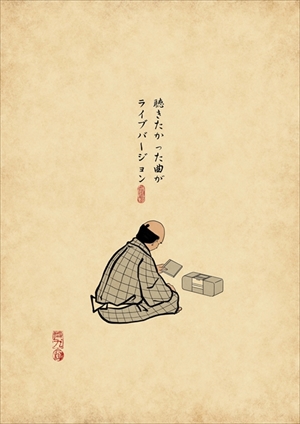 聴きたかった曲が
ライブバージョン